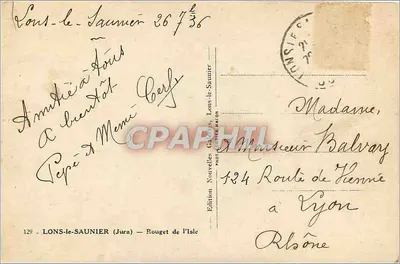 Lons-le-Saunier 26 7 36
Amitié à tous
à bientôt
Pépé et Mémé Cerf
CPAPHIL
Edition Nouvelles Galeries, Lons-le-Saunier
LONS LE
Madame,
& Monsieur Balvay
124 Route de Vienne
à Lyon
Rhône
129 - LONS-le-SAUNIER (Jura) — Rouget de l'Isle